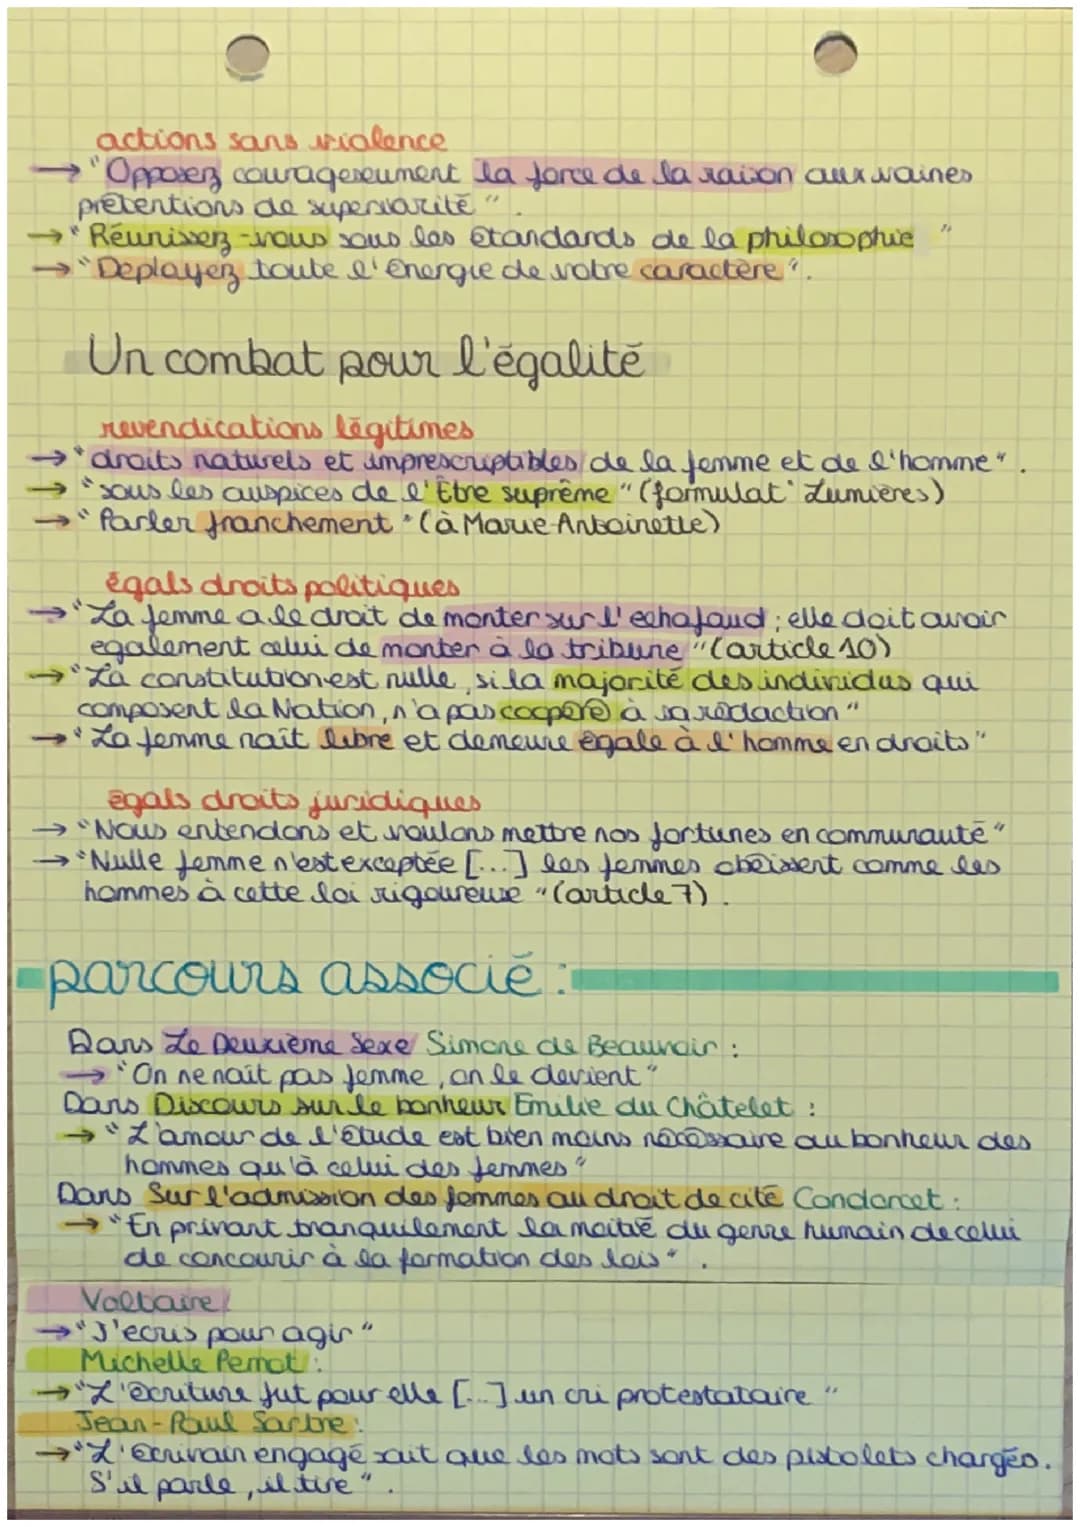 actions sans violence
→ "Opposez courageseument la force de la raison aux vaines
prétentions de supériorité".
→ "Réunissez-vous sous les étandards de la philosophie"
→ "Deployez toute l'énergie de votre caractère".
Un combat pour l'égalité
revendications légitimes
→ "droits naturels et imprescriptibles de la femme et de l'homme".
→ "sous les auspices de l'Être suprême" (formulat° Lumières)
→ "Parler franchement" (à Marie-Antoinette)
égals droits politiques
→ "La femme a le droit de monter sur l'echafaud ; elle doit avoir
egalement celui de monter à la tribune" (article 10)
→ "La constitution est nulle, si la majorité des individus qui
composent la Nation, n'a pas coopéré à sa rédaction"
→ "La femme naît libre et demeure égale à l'homme en droits"
égals droits juridiques
→ "Nous entendons et voulons mettre nos fortunes en communauté"
→ "Nulle femme n'est exceptée [...] les femmes obéissent comme les
hommes à cette loi rigoureuse" (article 7).
parcours associé :
Dans Le Deuxième Sexe Simone de Beauvoir :
→ "On ne naît pas femme, on le devient"
Dans Discours sur le bonheur Emilie du Châtelet :
→ "L'amour de l'étude est bien moins nécessaire au bonheur des
hommes qu'à celui des femmes"
Dans Sur l'admission des femmes au droit de cité Condorcet :
→ "En privant tranquilement la moitié du genre humain de celui
de concourir à la formation des lois".
Voltaire :
→ "J'ecris pour agir"
Michelle Perrot :
→ "L'écriture fut pour elle [...] un cri protestataire"
Jean-Paul Sartre :
→ "L'écrivain engagé sait que les mots sont des pistolets chargés.
S'il parle, il tire".